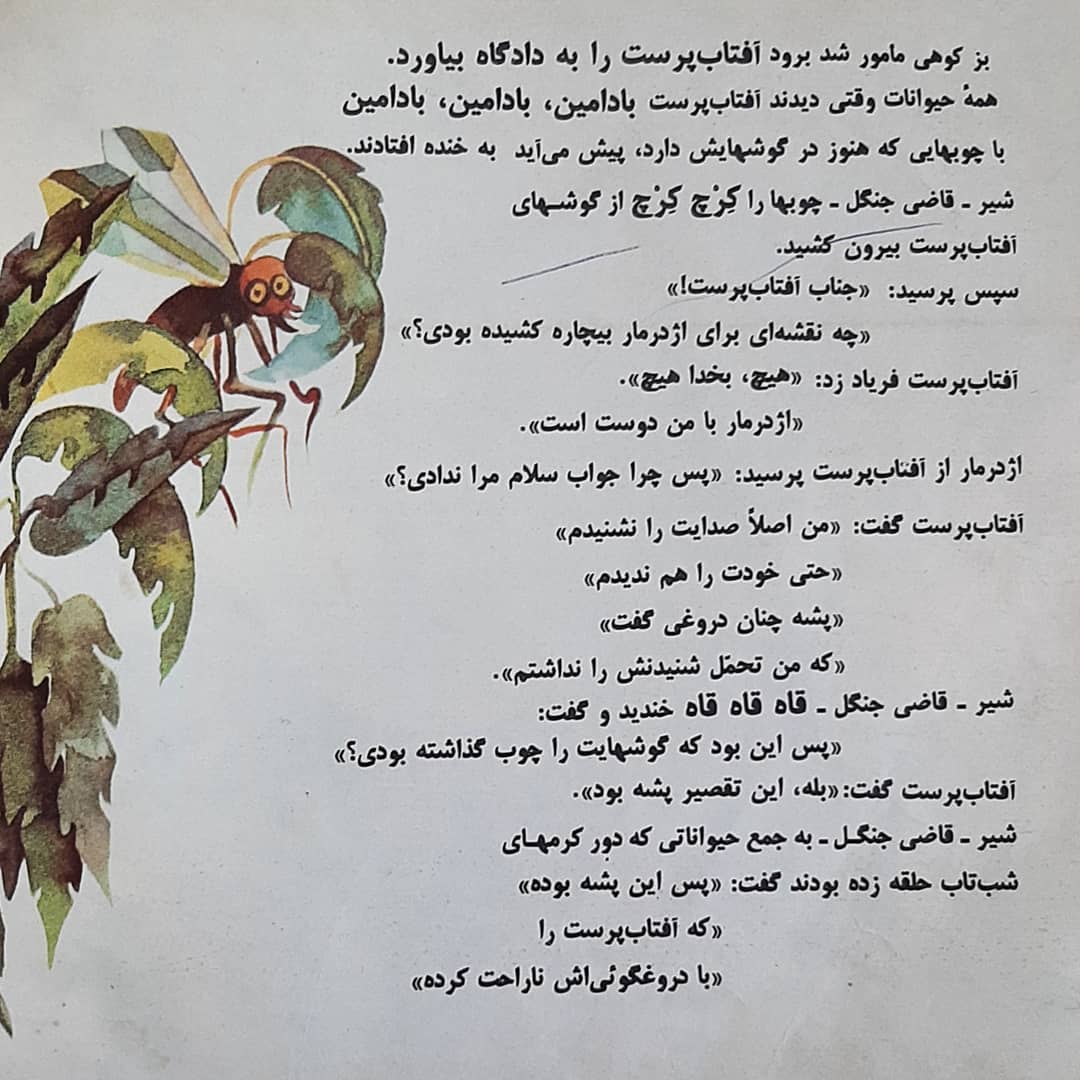 بز کوهی مامور شد برود آفتاب‌پرست را به دادگاه بیاورد.
همهٔ حیوانات وقتی دیدند آفتاب‌پرست بادامین، بادامین، بادامین
با چوبهایی که هنوز در گوشهایش دارد، پیش می‌آید به خنده افتادند.
شیر ـ قاضی جنگل ـ چوبها را کِرْچ کِرْچ از گوشـهای
آفتاب‌پرست بیرون کشید.
سپس پرسید: «جناب آفتاب‌پرست!»
«چه نقشه‌ای برای اژدرمار بیچاره کشیده بودی؟»
آفتاب‌پرست فریاد زد: «هیچ، بخدا هیچ».
«اژدرمار با من دوست است».
اژدرمار از آفتاب‌پرست پرسید: «پس چرا جواب سلام مرا ندادی؟»
آفتاب‌پرست گفت: «من اصلاً صدایت را نشنیدم»
«حتی خودت را هم ندیدم»
«پشه چنان دروغی گفت»
«که من تحمّل شنیدنش را نداشتم».
شیر ـ قاضی جنگل ـ قاه قاه قاه خندید و گفت:
«پس این بود که گوشهایت را چوب گذاشته بودی؟»
آفتاب‌پرست گفت: «بله، این تقصیر پشه بود».
شیر ـ قاضی جنگـل ـ به جمع حیواناتی که دور کرمهـای
شب‌تاب حلقه زده بودند گفت: «پس این پشه بوده»
«که آفتاب‌پرست را
«با دروغگوئی‌اش ناراحت کرده»